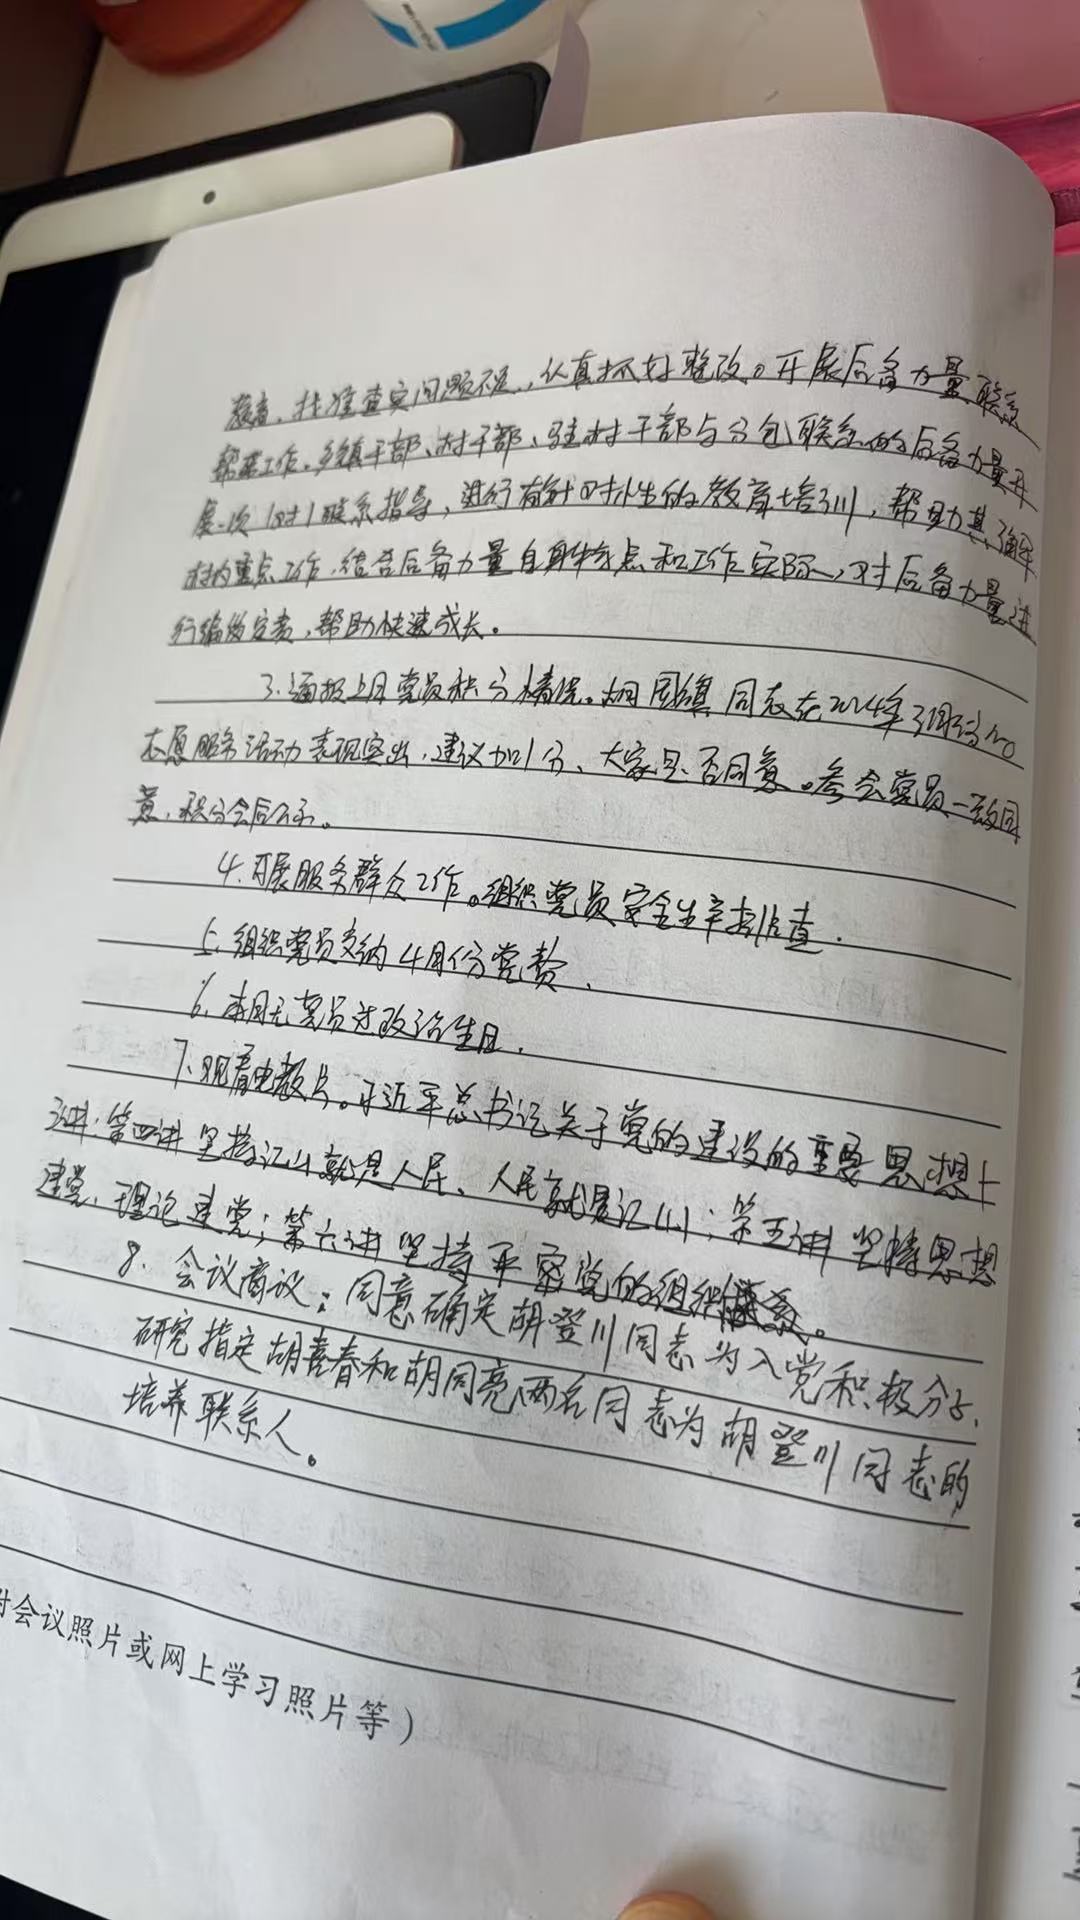 教育、找准查实问题不足，认真抓好整改。开展后备力量联系
帮带工作。乡镇干部、村干部、驻村干部与分包联系的后备力量开
展一次1对1联系指导，进行有针对性的教育培训，帮助其了解
村内重点工作，结合后备力量自身特点和工作实际，对后备力量进
行编岗定责，帮助快速成长。
3.通报上月党员积分情况。胡国镇同志在2024年3月份
志愿服务活动表现突出，建议加1分、大家是否同意。参会党员一致同
意，积分会后公示。
4.开展服务群众工作。组织党员安全生产排查.
5.组织党员交纳4月份党费、
6.本月无党员过政治生日.
7.观看电教片。习近平总书记关于党的建设的重要思想十
三讲：第四讲 坚持江山就是人民、人民就是江山；第五讲 坚持思想
建党、理论建党；第六讲坚持严密党的组织体系。
8.会议商议：同意确定胡登川同志为入党积极分子、
研究指定胡喜春和胡同亮两名同志为胡登川同志的
培养联系人。
附会议照片或网上学习照片等）